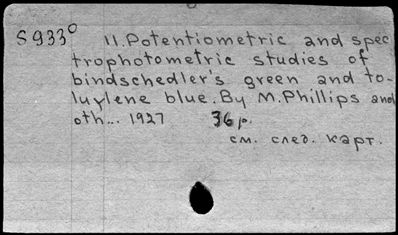 S933⁰ 11.Potentiometric and spec
trophotometric studies of
bindschedler's green and to-
luylene blue. By M.Phillips and
oth... 1927 36 p.
см. след. карт.